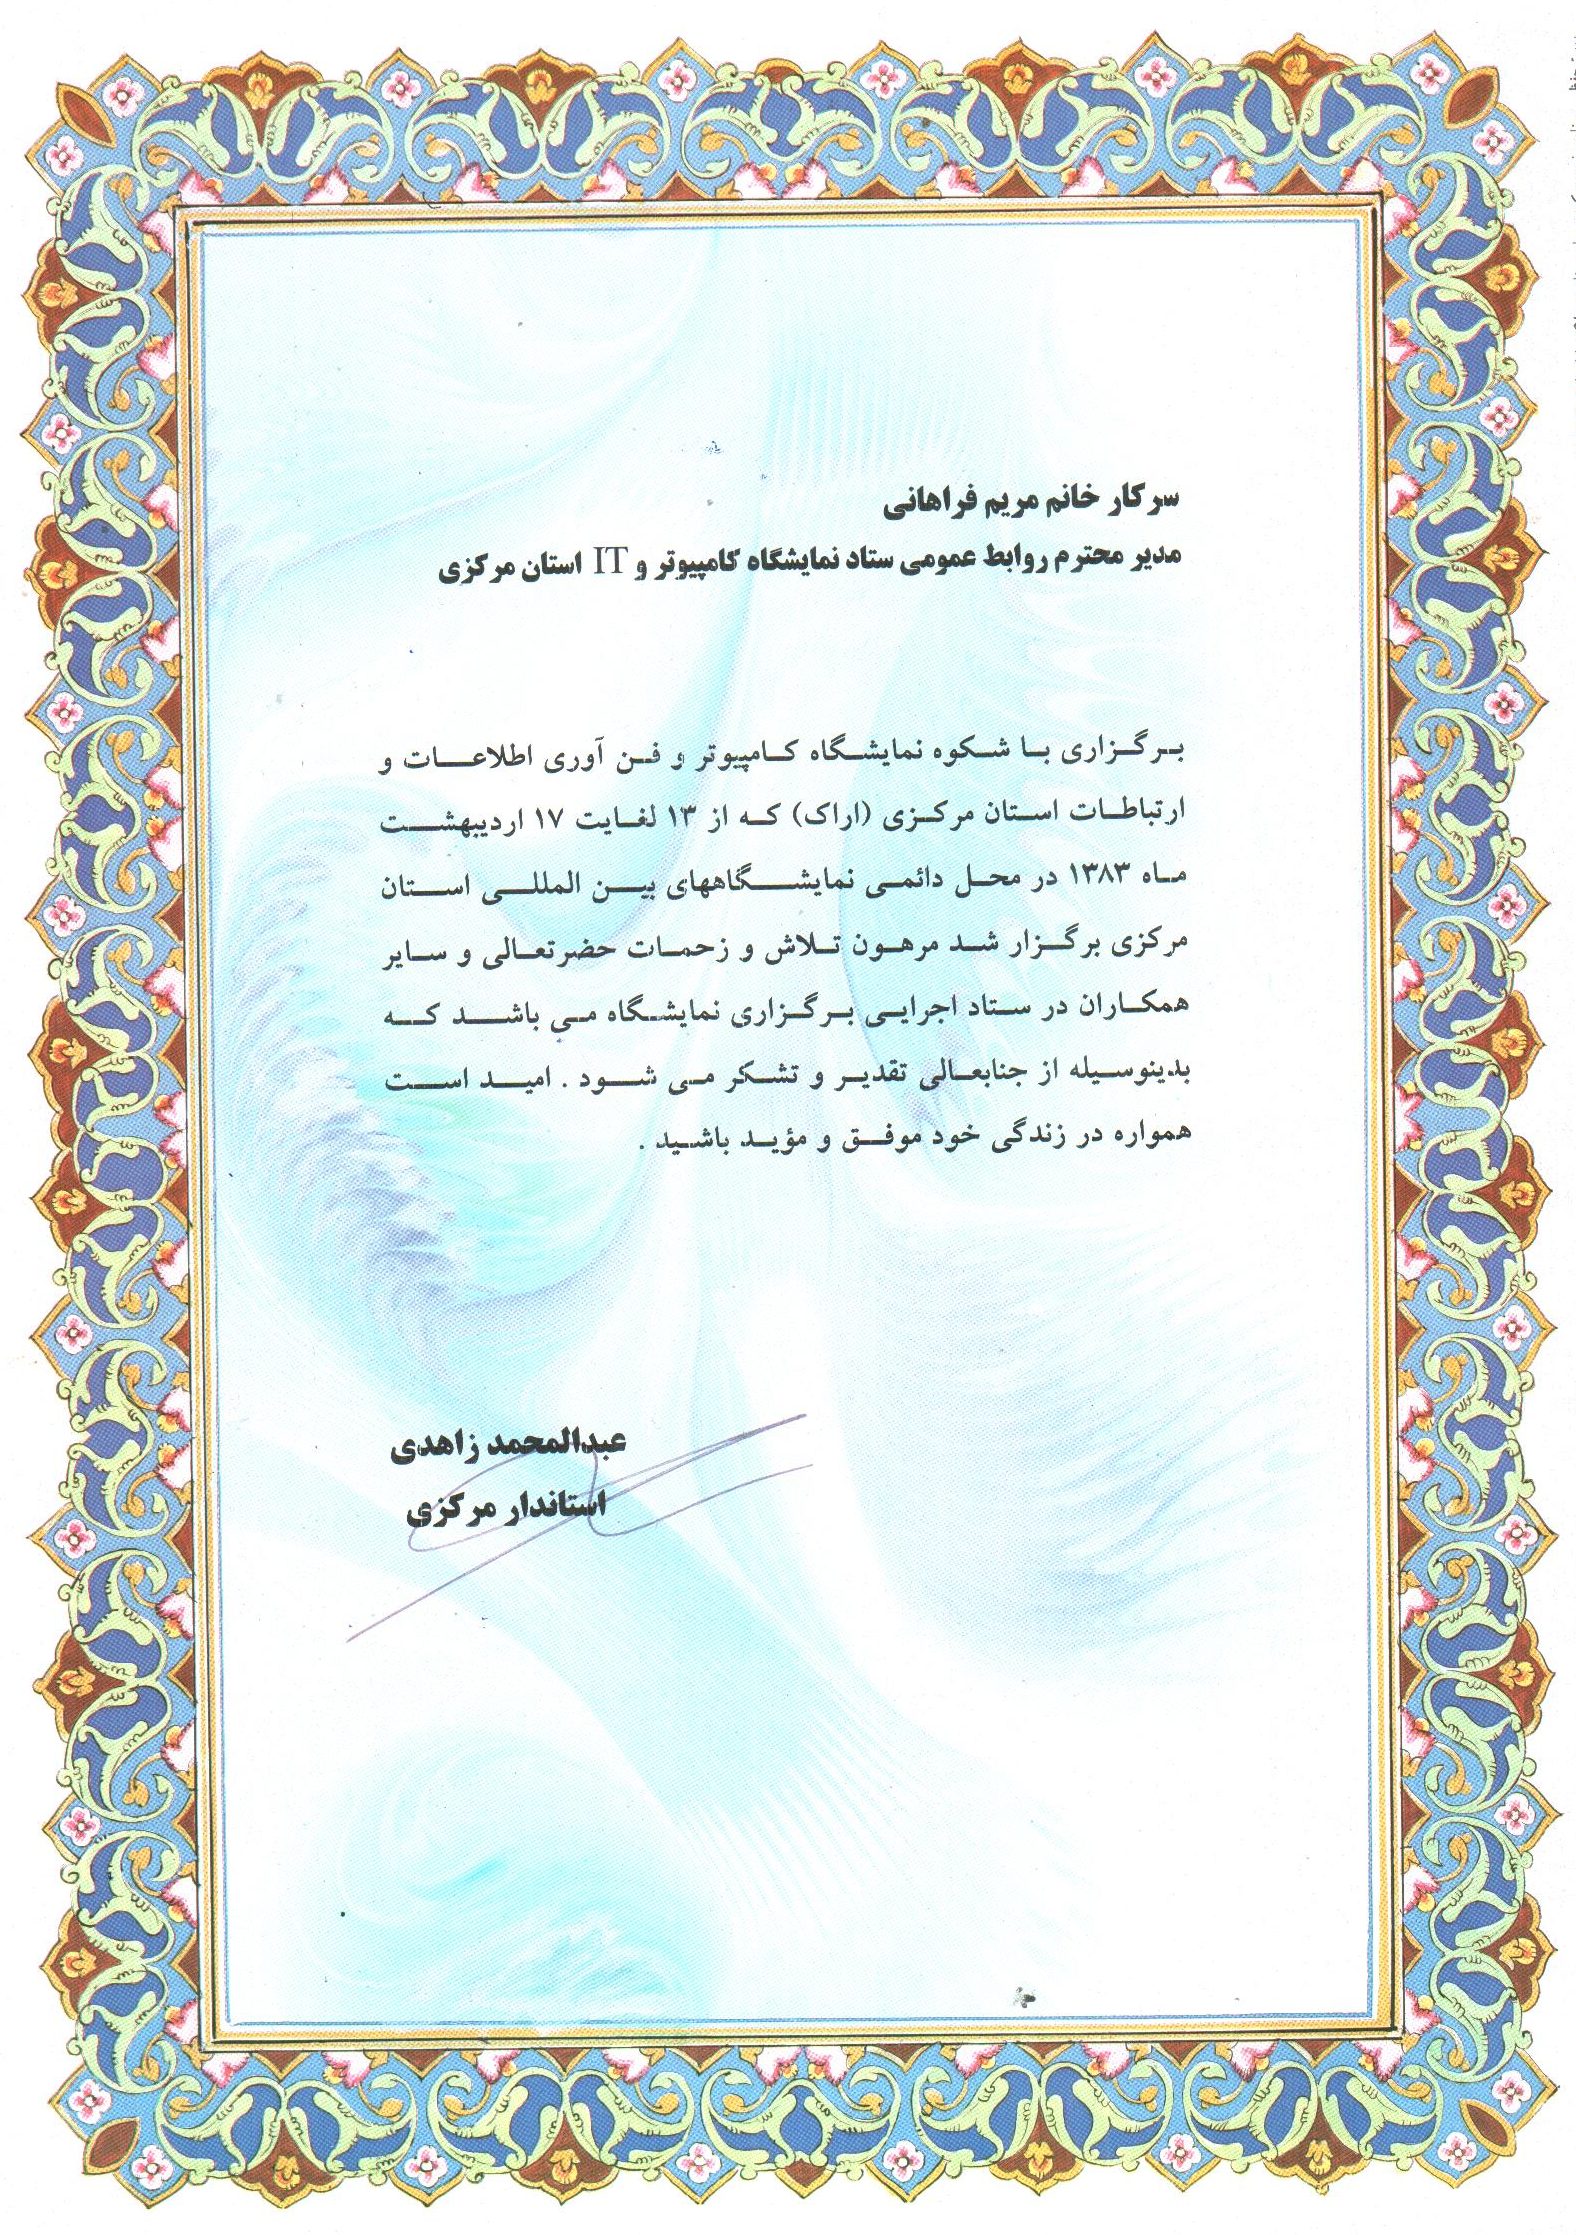 سرکار خانم مریم فراهانی
مدیر محترم روابط عمومی ستاد نمایشگاه کامپیوتر و IT استان مرکزی
برگزاری با شکوه نمایشگاه کامپیوتر و فن آوری اطلاعات و
ارتباطات استان مرکزی (اراک) که از ۱۳ لغایت ۱۷ اردیبهشت
ماه ۱۳۸۳ در محل دائمی نمایشگاههای بین المللی استان
مرکزی برگزار شد مرهون تلاش و زحمات حضرتعالی و سایر
همکاران در ستاد اجرایی برگزاری نمایشگاه می باشد که
بدینوسیله از جنابعالی تقدیر و تشکر می شود . امید است
همواره در زندگی خود موفق و مؤید باشید .
عبدالمحمد زاهدی
استاندار مرکزی